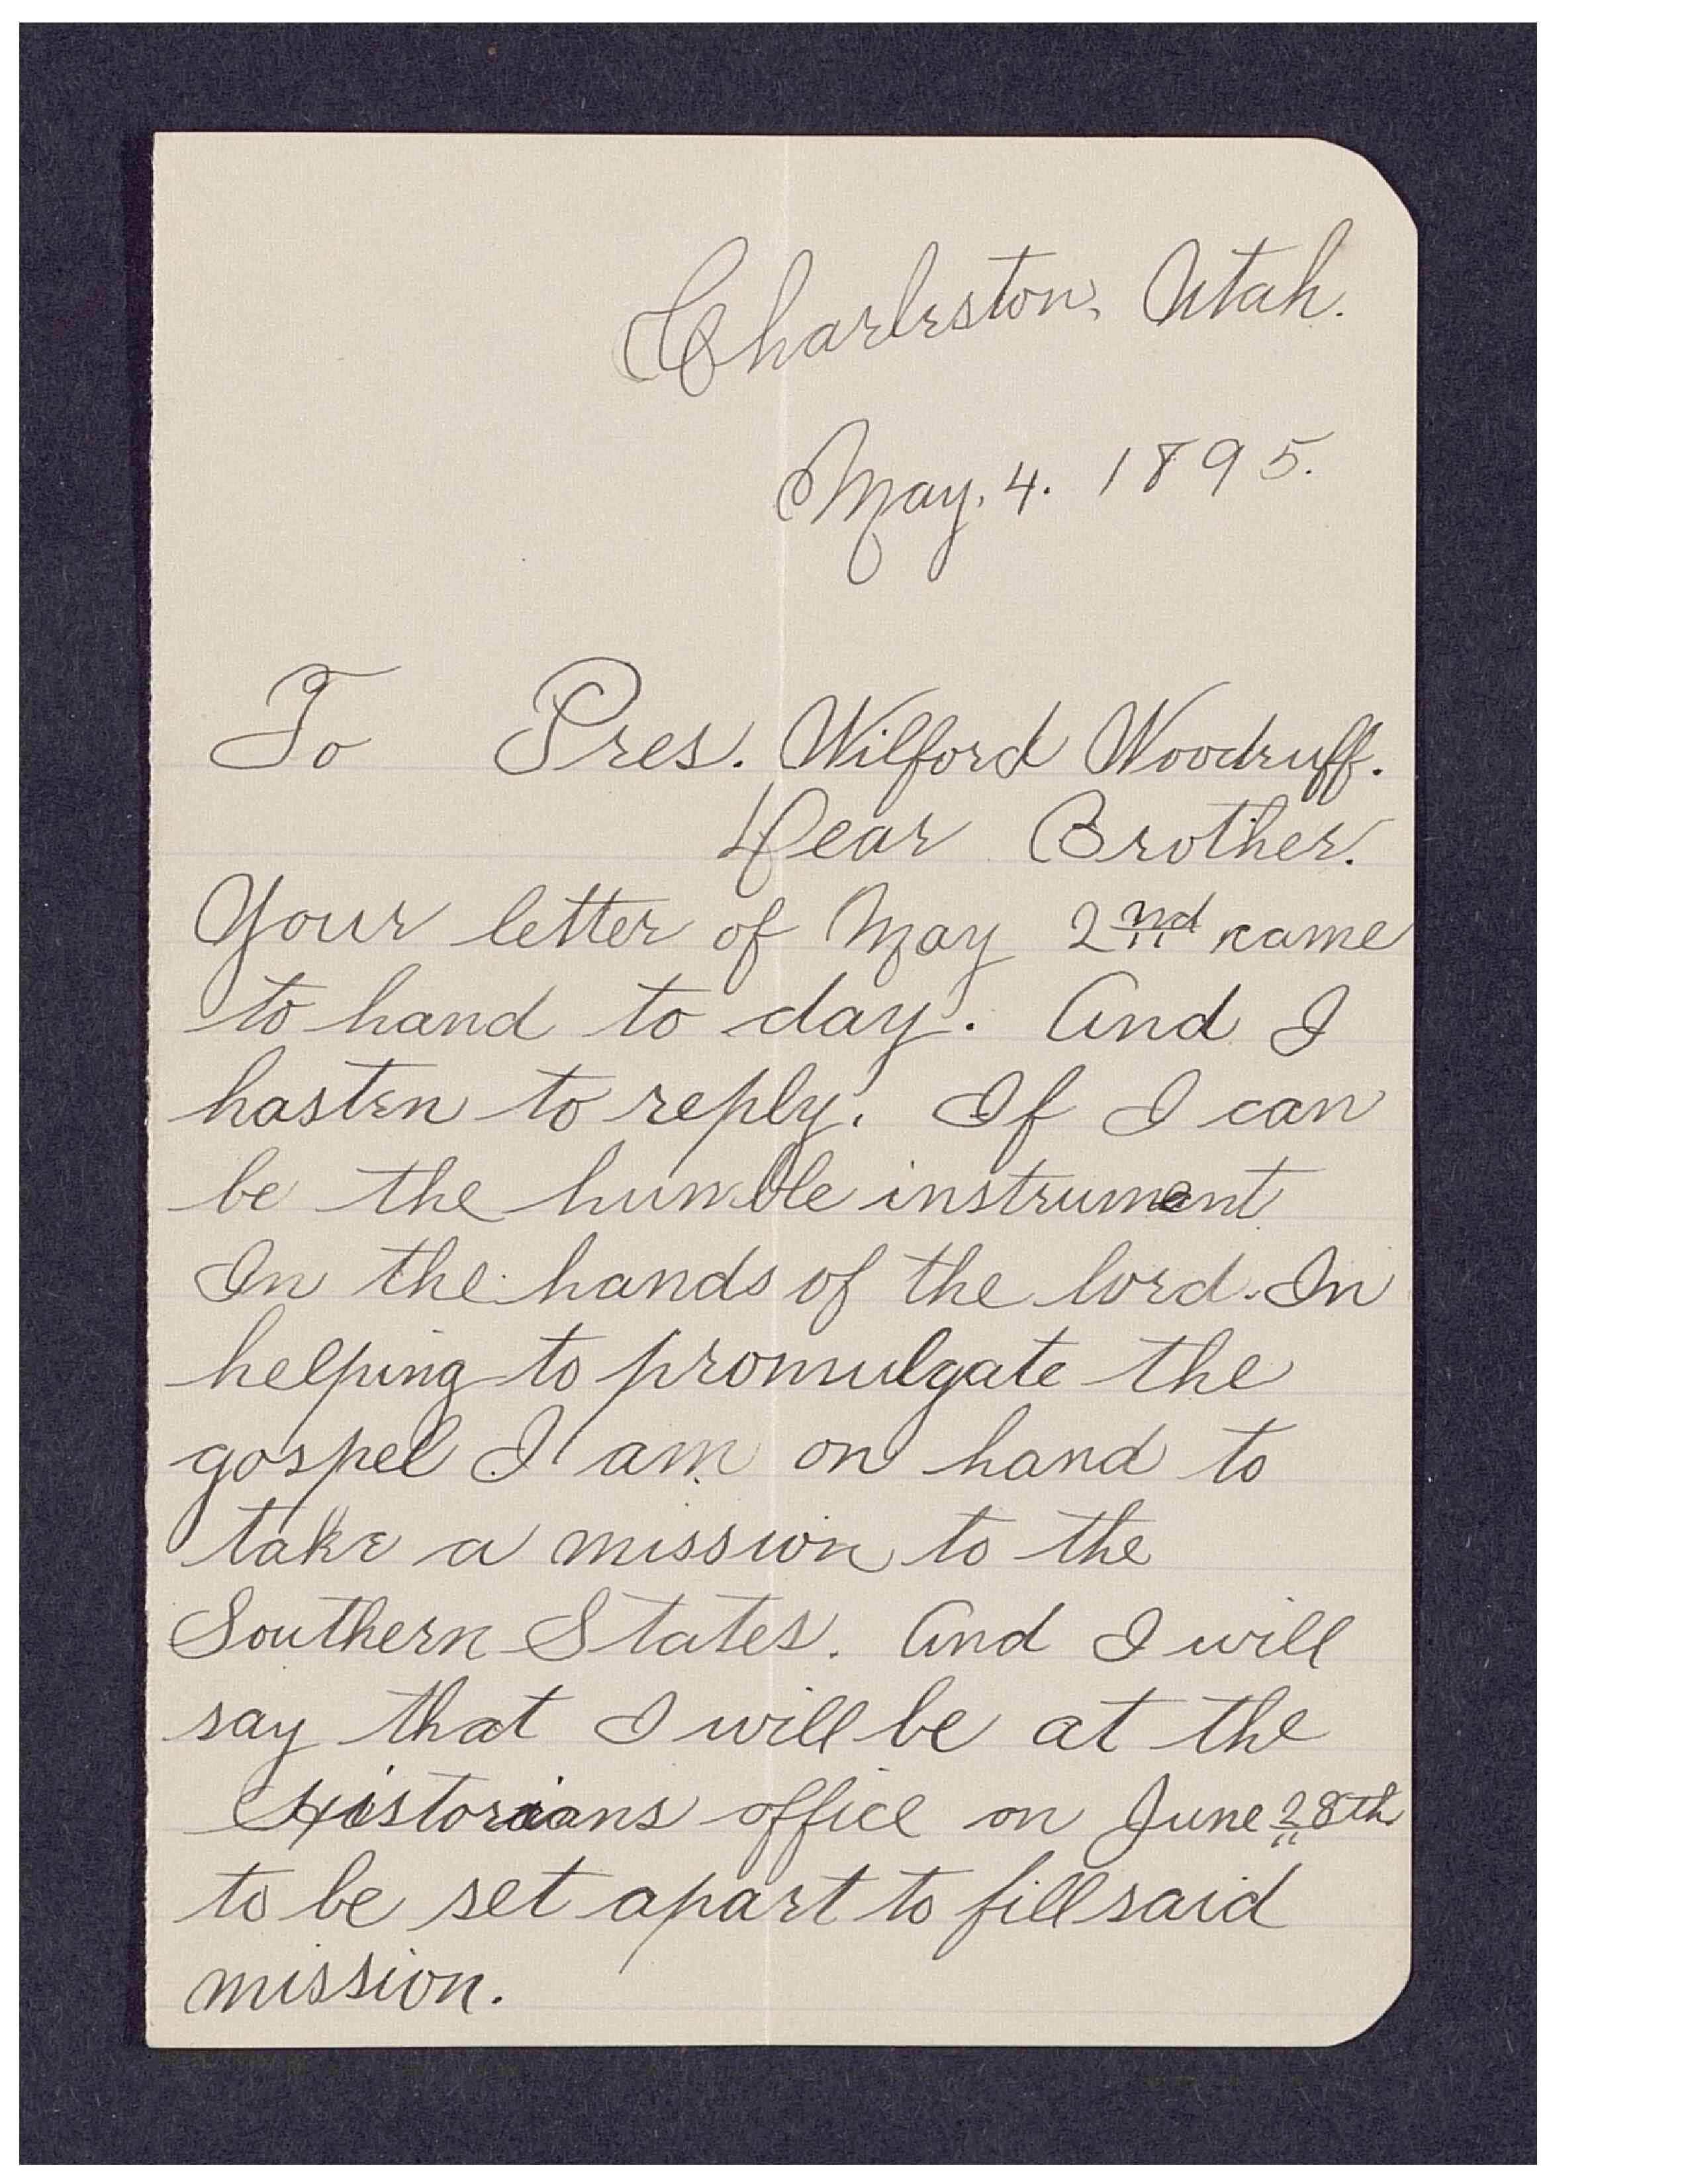 Charleston, Utah.
May. 4. 1895.
To Pres. Wilford Woodruff.
Dear Brother.
Your letter of May 2nd came
to hand to day. And I
hasten to reply. If I can
be the humble instrument
In the hands of the lord. In
helping to promulgate the
gospel I am on hand to
take a mission to the
Southern States. And I will
say that I will be at the
Historians office on June 28th
to be set apart to fill said
mission.